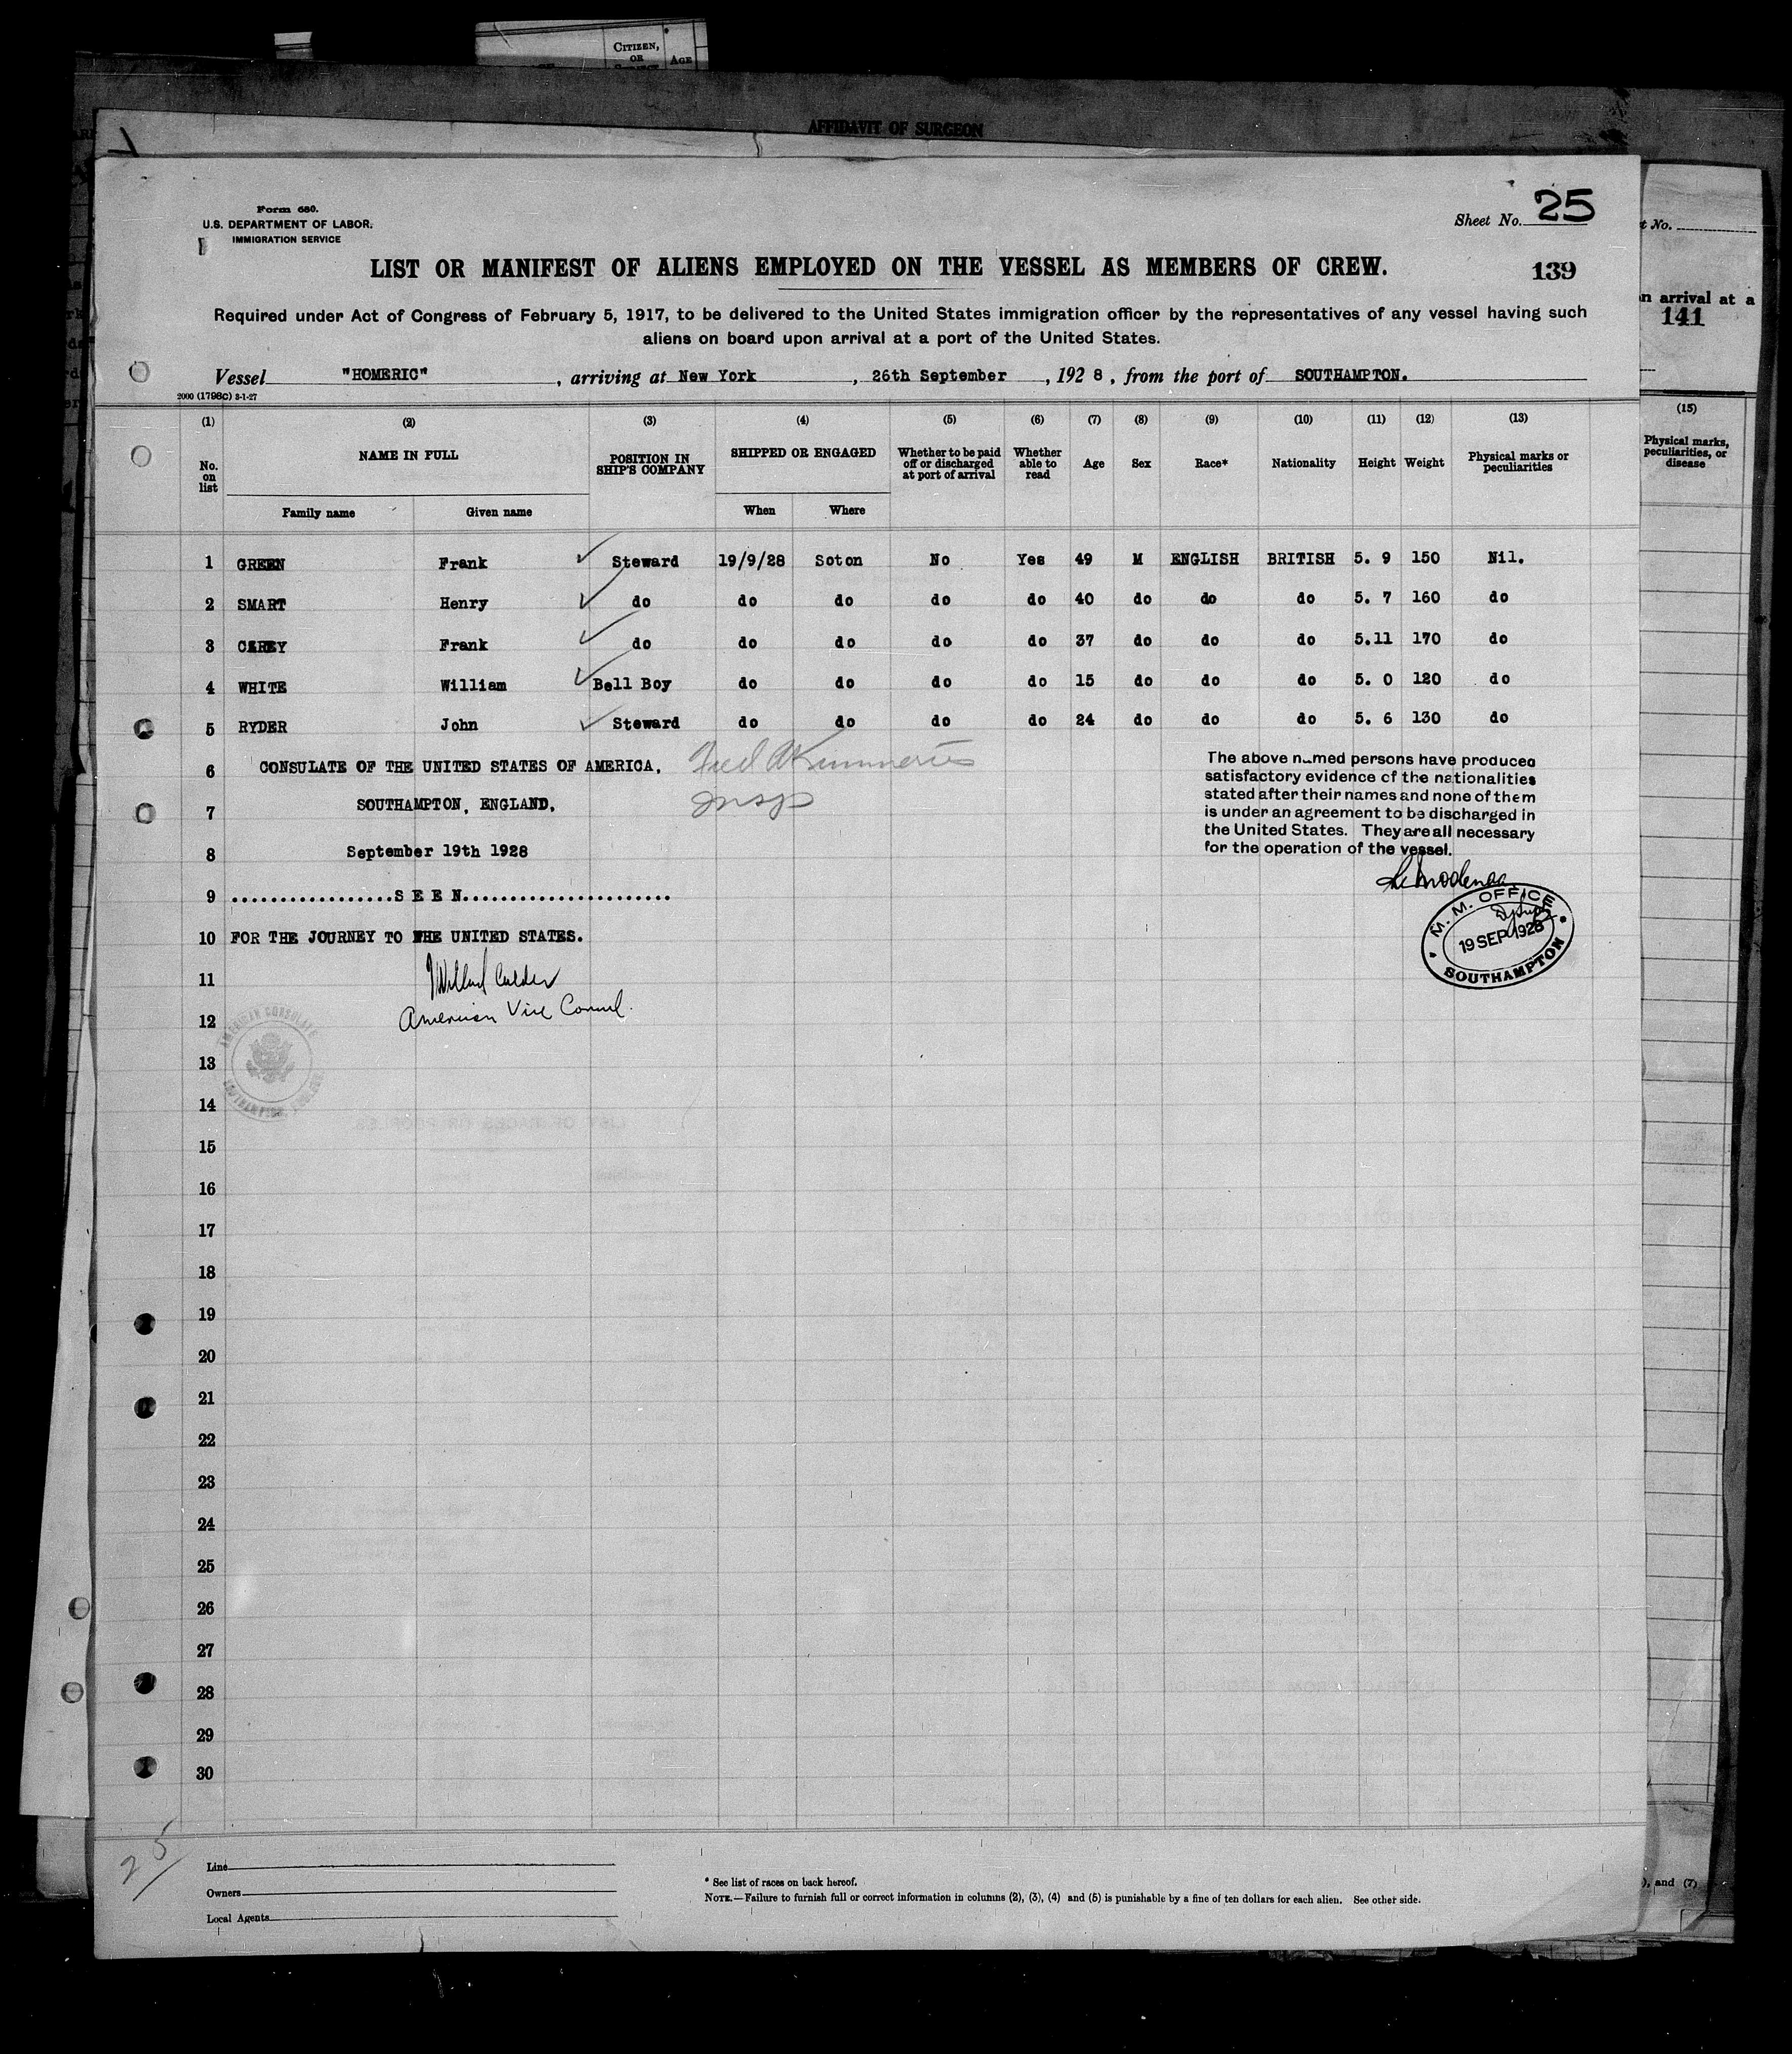 CITIZEN,
OR
AGE
AFFIDAVIT OF SURGEON
Form 680.
U.S. DEPARTMENT OF LABOR.
IMMIGRATION SERVICE
Sheet No. 25
t No.
LIST OR MANIFEST OF ALIENS EMPLOYED ON THE VESSEL AS MEMBERS OF CREW.
139
Required under Act of Congress of February 5, 1917, to be delivered to the United States immigration officer by the representatives of any vessel having such
aliens on board upon arrival at a port of the United States.
n arrival at a
141
Vessel "HOMERIC", arriving at New York, 26th September, 1928, from the port of SOUTHAMPTON.
2000 (1798C) 3-1-27
(1) (2) (3) (4) (5) (6) (7) (8) (9) (10) (11) (12) (13)
No. on list NAME IN FULL POSITION IN SHIP'S COMPANY SHIPPED OR ENGAGED Whether to be paid off or discharged at port of arrival Whether able to read Age Sex Race* Nationality Height Weight Physical marks or peculiarities
Family name Given name When Where
(15)
Physical marks,
peculiarities, or
disease
1 GREEN Frank Steward 19/9/28 Soton No Yes 49 M ENGLISH BRITISH 5. 9 150 Nil.
2 SMART Henry do do do do do 40 do do do 5. 7 160 do
3 CAREY Frank do do do do do 37 do do do 5.11 170 do
4 WHITE William Bell Boy do do do do 15 do do do 5. 0 120 do
5 RYDER John Steward do do do do 24 do do do 5. 6 130 do
6 CONSULATE OF THE UNITED STATES OF AMERICA.
Insp
7 SOUTHAMPTON, ENGLAND.
8 September 19th 1928
9 ..................S E E N.......................
10 FOR THE JOURNEY TO THE UNITED STATES.
The above named persons have produced
satisfactory evidence of the nationalities
stated after their names and none of them
is under an agreement to be discharged in
the United States. They are all necessary
for the operation of the vessel.
M. M. OFFICE
19 SEP 1928
SOUTHAMPTON
11
12 American Vice Consul.
AMERICAN CONSULATE
SOUTHAMPTON, ENGLAND
13
14
15
16
17
18
19
20
21
22
23
24
25
26
27
28
29
30
25
Line
Owners
Local Agents
* See list of races on back hereof.
NOTE.—Failure to furnish full or correct information in columns (2), (3), (4) and (5) is punishable by a fine of ten dollars for each alien. See other side.
), and (7)